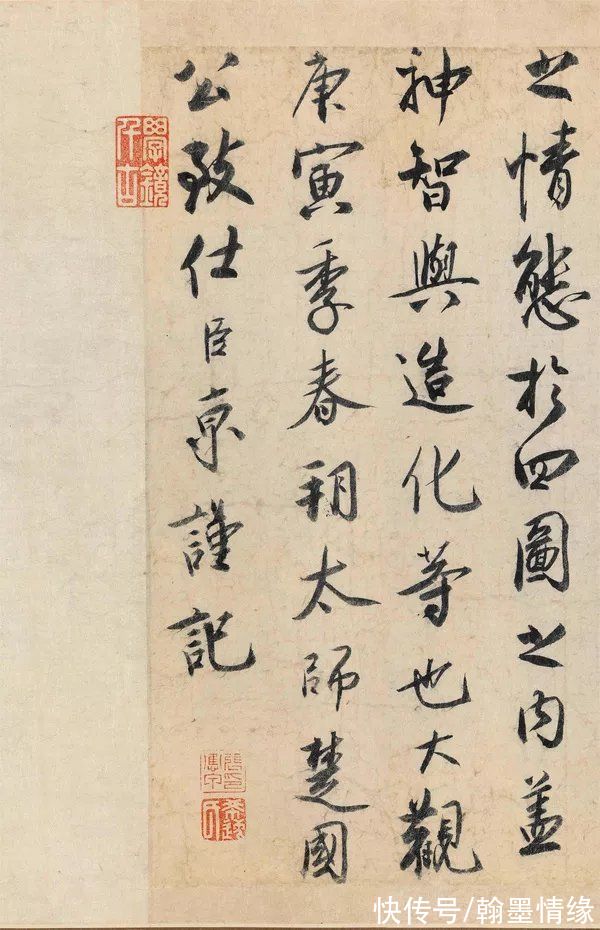 之情態於四圖之内蓋
神智與造化等也大觀
庚寅季春朔太師楚國
公致仕臣京謹記
快传号/翰墨情缘